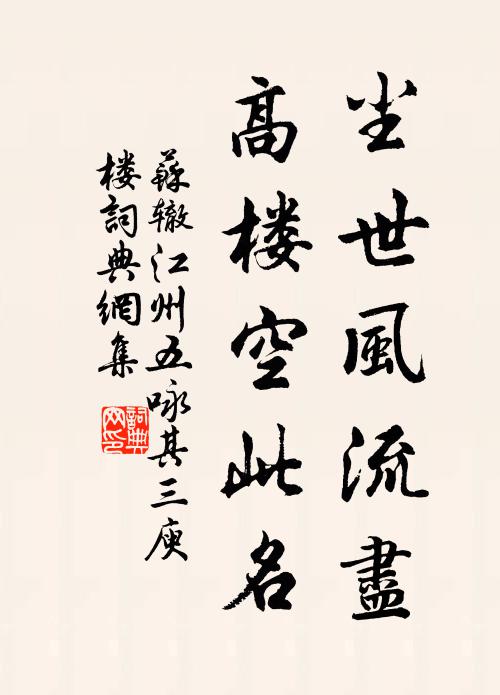 尘世風流盡
髙楼空此名
蘇辙江州五咏其三庾
楼詞典網集
詞典网印